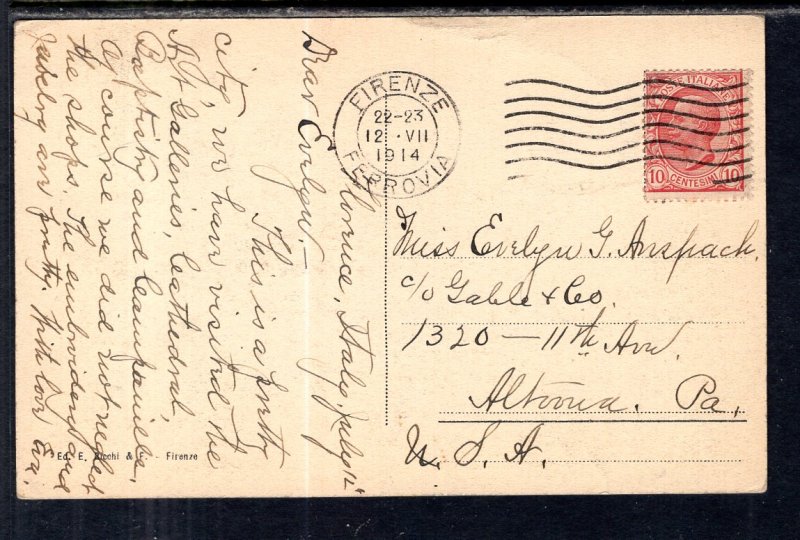 Florence, Italy, July 12"
Dear Evelyn:-
This is a pretty
city we have visited the
Art Galleries, Cathedral,
Baptistry and Campanille,
Of course we did not neglect
the shops. The embroidery and
are pretty. With love Eva.
Ed. E. & F. - Firenze
FIRENZE
22-23
12 · VII
1914
FERROVIA
POSTE ITALIANE
10 CENTESIMI 10
Miss Evelyn G. Anspach.
c/o Gable & Co.
1320 - 11th Ave.
Altoona. Pa,
U. S. A.